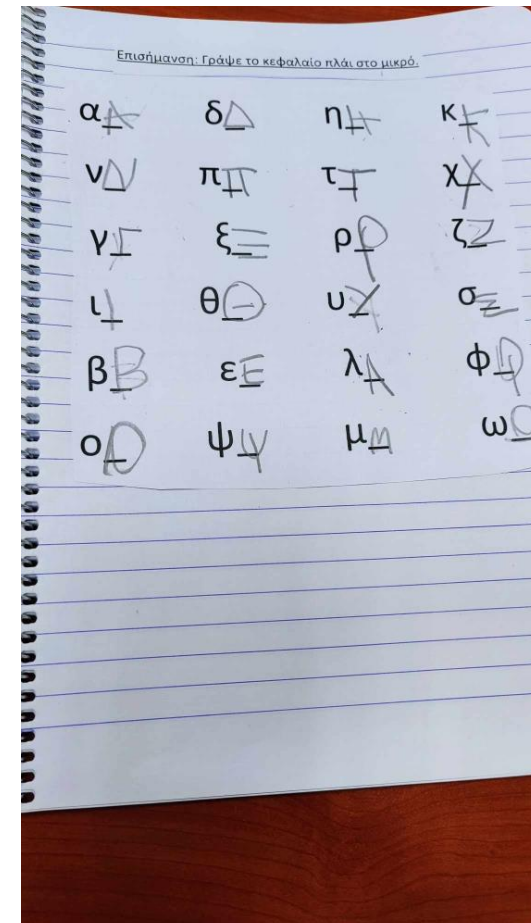 Επισήμανση: Γράψε το κεφαλαίο πλάι στο μικρό.
α Α δ Δ η Η κ Κ
ν Ν π Π τ Τ χ Χ
γ Γ ξ Ξ ρ Ρ ζ Ζ
ι Ι θ Θ υ Υ σ Σ
β Β ε Ε λ Λ φ Φ
ο Ο ψ Ψ μ Μ ω Ω